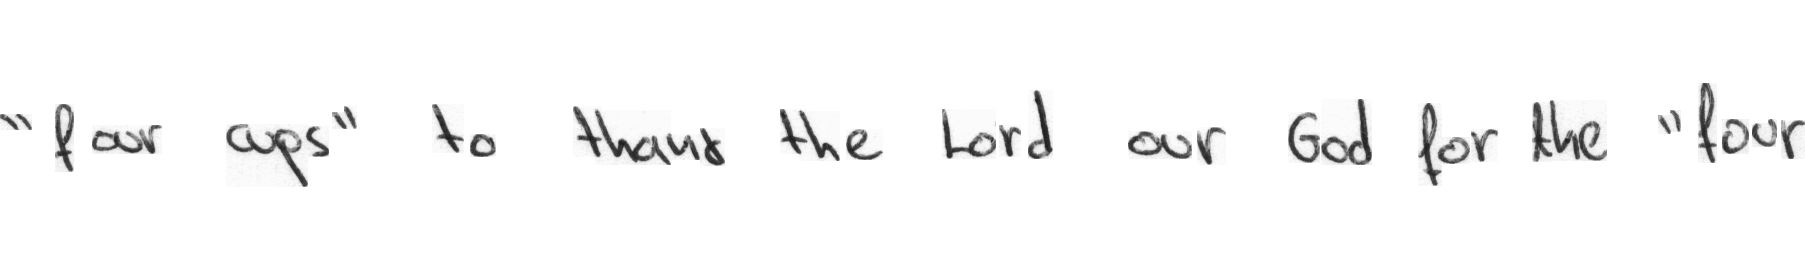 "four cups" to thank the Lord our God for the "four